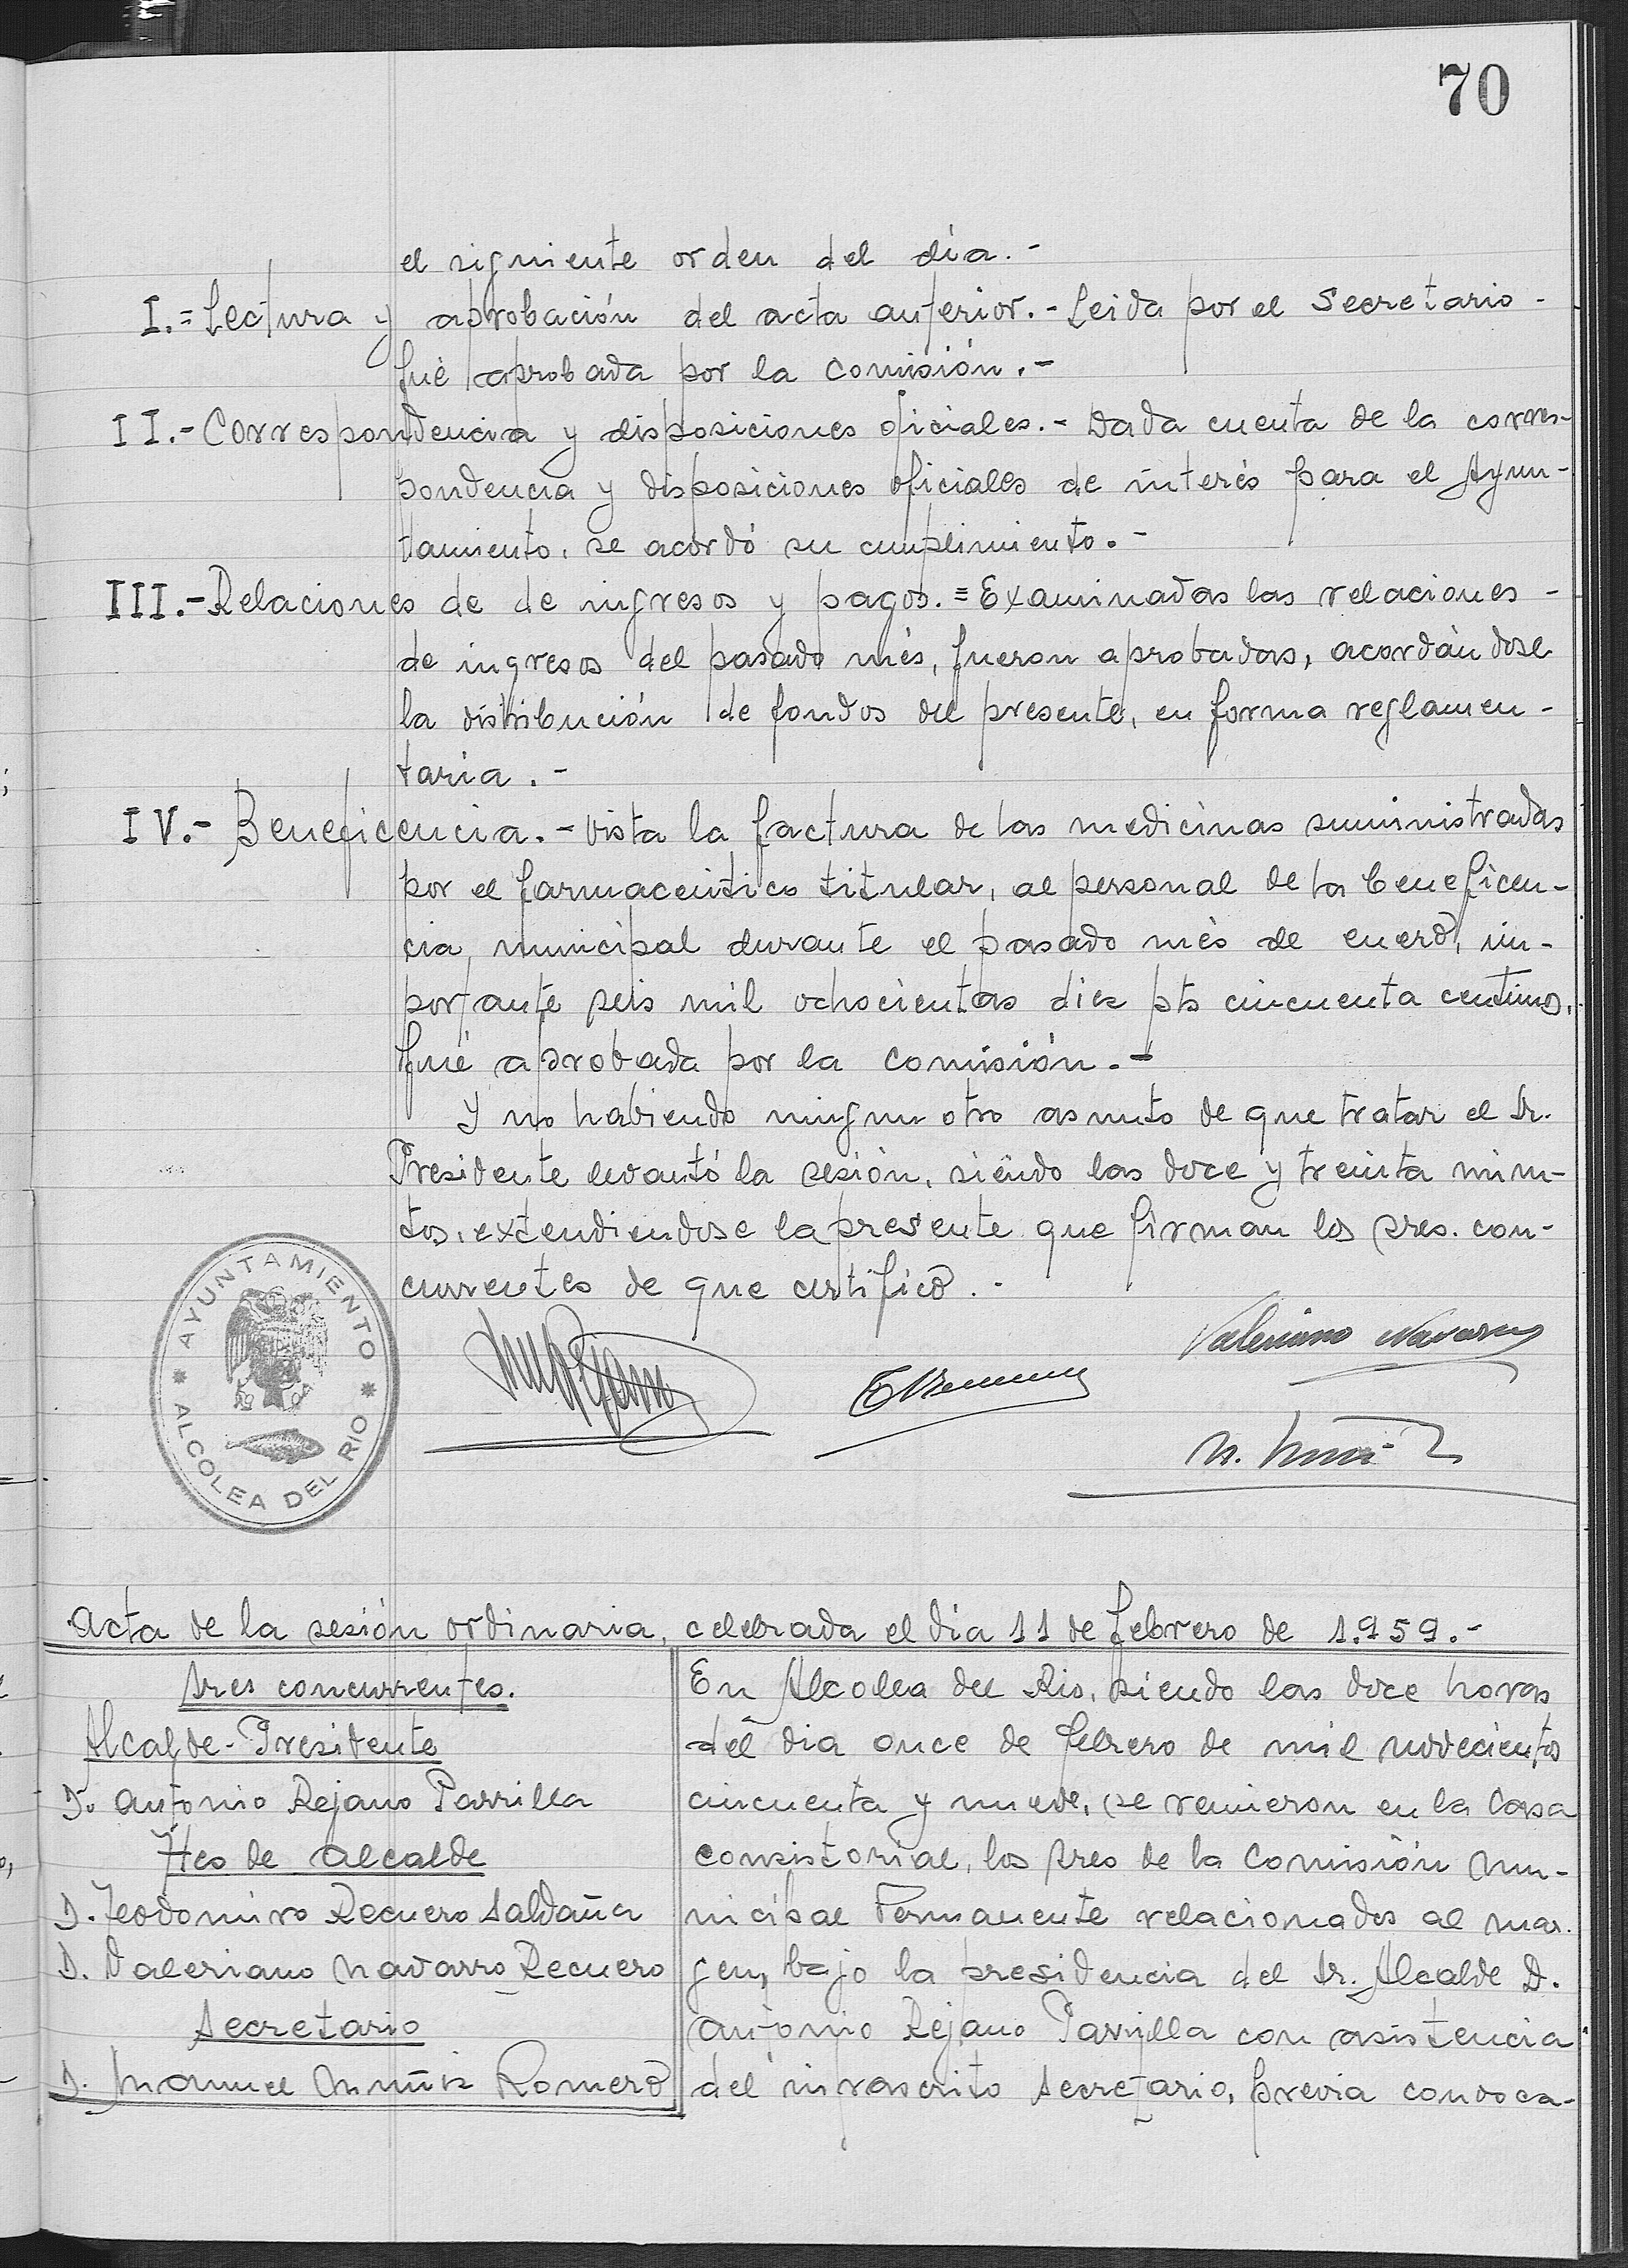 70
el siguiente orden del día.-
I.= Lectura y aprobación del acta anterior.- Leida por el Secretario -
fué aprobada por la comisión.-
II.- Correspondencia y disposiciones oficiales.- Dada cuenta de la corres-
pondencia y disposiciones oficiales de interés para el Ayun-
tamiento, se acordó su cumplimiento.-
III.- Relaciones de de ingresos y pagos.= Examinadas las relaciones -
de ingresos del pasado més, fueron aprobadas, acordándose
la distribución de fondos del presente, en forma reglamen-
taria.-
IV.- Beneficencia.- Vista la factura de las medicinas suministradas
por el farmaceútico titular, al personal de la beneficen-
cia municipal durante el pasado més de enero, im-
portante seis mil ochocientas diez pts cincuenta centimos,
fué aprobada por la comisión.-
Y no habiendo ningun otro asunto de que tratar el Sr.
Presidente levantó la sesión, siendo las doce y treinta minu-
tos, extendiendose la presente que firman los sres. con-
currentes de que certifico.
AYUNTAMIENTO
ALCOLEA DEL RIO
Valeriano Navarro
Acta de la sesión ordinaria, celebrada el día 11 de febrero de 1.959.-
Sres concurrentes.
Alcalde-Presidente
D. Antonio Rejano Parrilla
Ttes de Alcalde
D. Teodomiro Recuero Saldaña
D. Valeriano Navarro Recuero
Secretario
D. Manuel Muñiz Romero
En Alcolea del Rio, siendo las doce horas
del dia once de febrero de mil novecientos
cincuenta y nueve, se reunieron en la Casa
consistorial, los sres de la Comisión Mu-
nicipal Permanente relacionados al mar-
gen, bajo la presidencia del Sr. Alcalde D.
Antonio Rejano Parrilla con asistencia
del infrascrito Secretario, previa convoca-